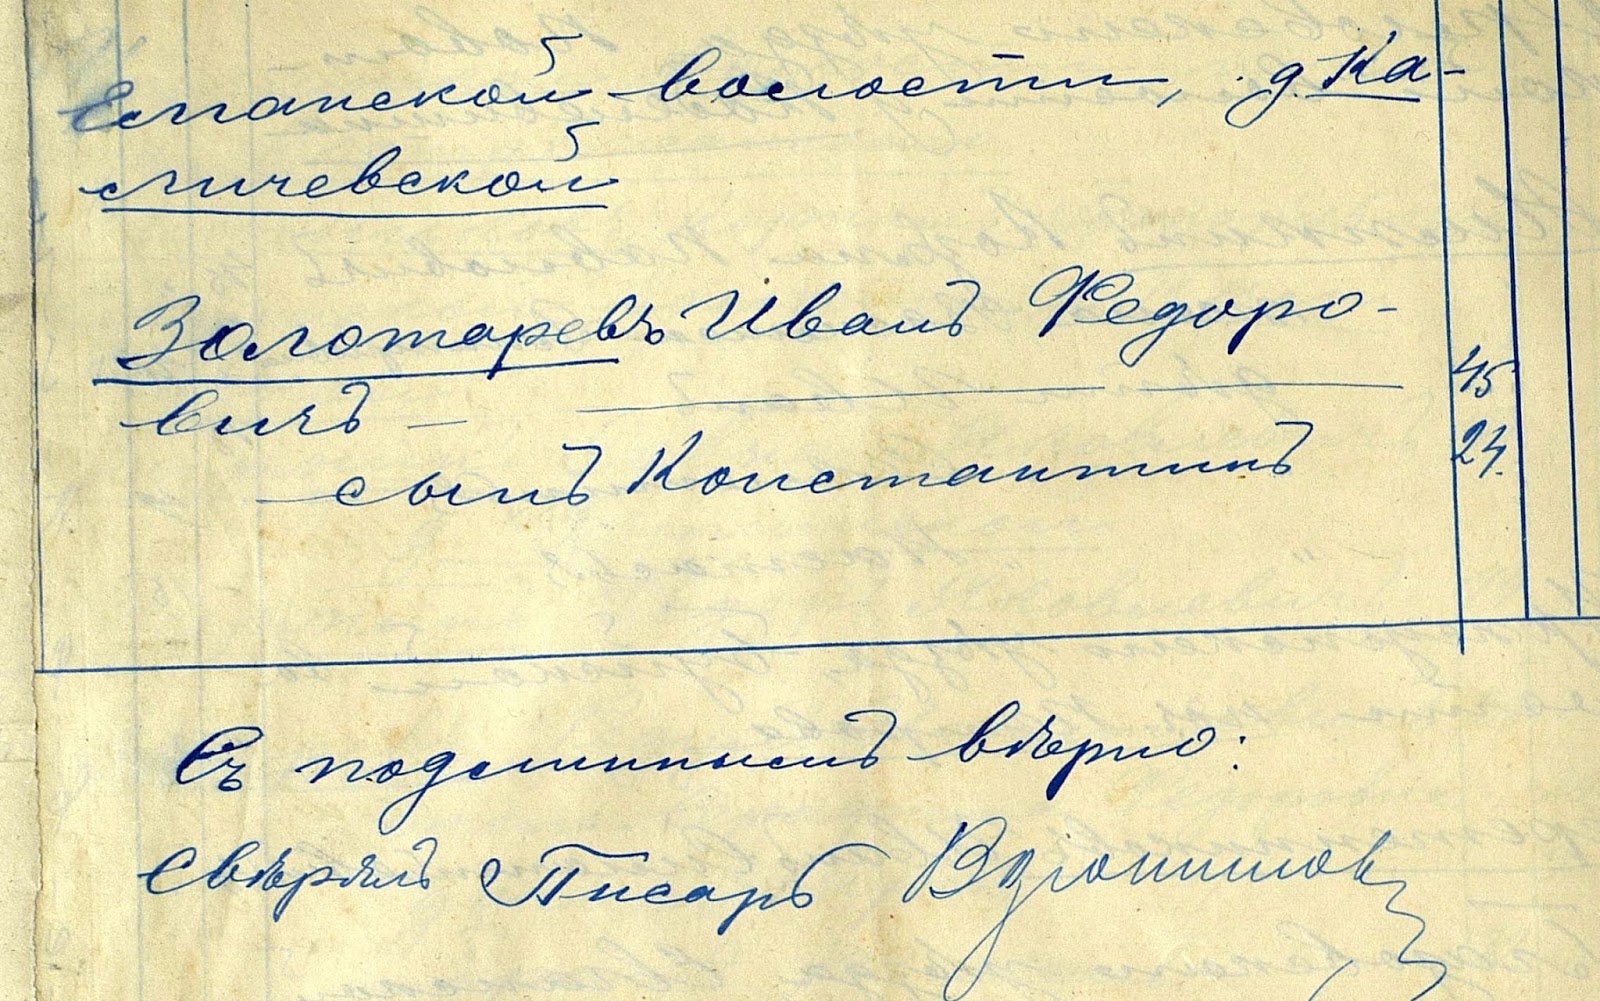 Еланской волости, д. Ка-
личевской
Золотаревъ Иванъ Федоро-
вичъ — 45
сынъ Константинъ 24.
Съ подлиннымъ вѣрно:
Свѣрялъ Писарь